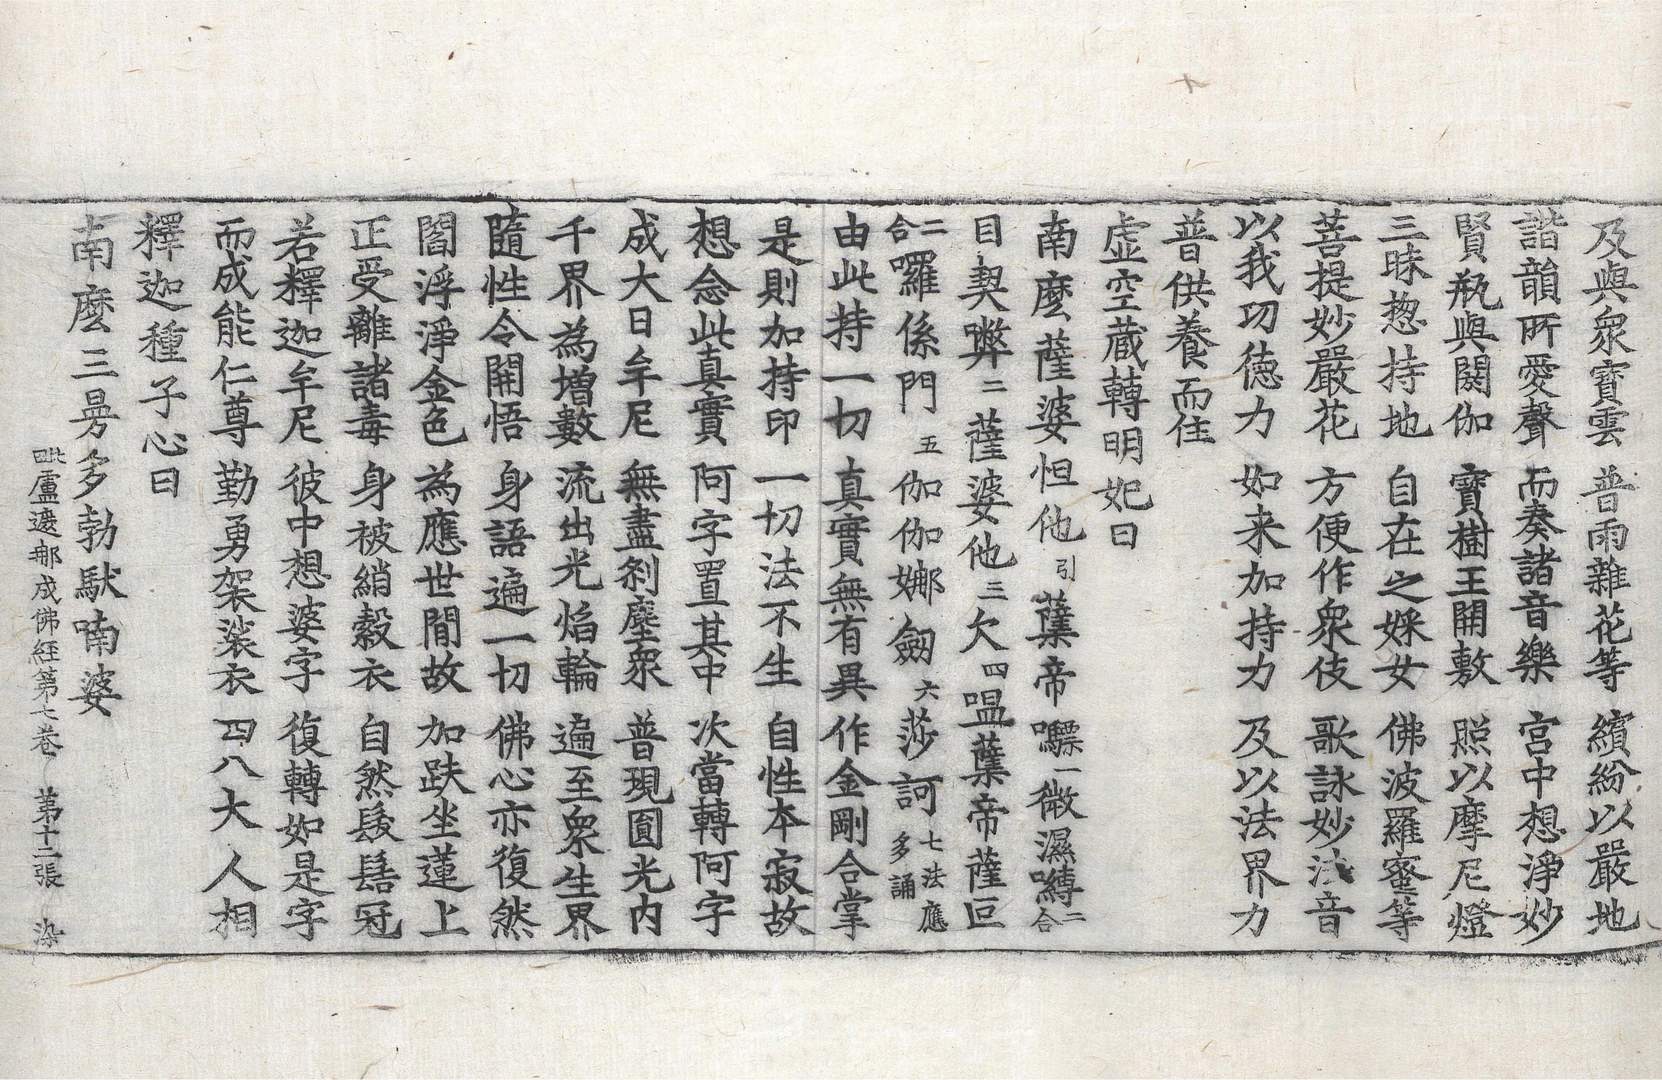 及與衆寶雲 普雨雜花等 繽紛以嚴地
諧韻所愛聲 而奏諸音樂 宮中想淨妙
賢瓶與閼伽 寶樹王開敷 照以摩尼燈
三昧揔持地 自在之婇女 佛波羅蜜等
菩提妙嚴花 方便作衆伎 歌詠妙法音
以我功德力 如来加持力 及以法界力
普供養而住
虛空藏轉明妃曰
南麼薩婆怛他引蘗帝嚩一微濕嚩二合
目契弊二薩婆他三欠四嗢蘗帝薩叵
二合囉係門五伽伽娜劒六莎訶七法應多誦
由此持一切 真實無有異 作金剛合掌
是則加持印 一切法不生 自性本寂故
想念此真實 阿字置其中 次當轉阿字
成大日牟尼 無盡刹塵衆 普現圎光内
千界為增數 流出光焰輪 遍至衆生界
隨性令開悟 身語遍一切 佛心亦復然
閻浮淨金色 為應世間故 加趺坐蓮上
正受離諸毒 身被綃縠衣 自然髮髻冠
若釋迦牟尼 彼中想婆字 復轉如是字
而成能仁尊 勤勇袈裟衣 四八大人相
釋迦種子心曰
南麼三曼多勃馱喃婆
毗盧遮那成佛經第七卷 第十二張 染